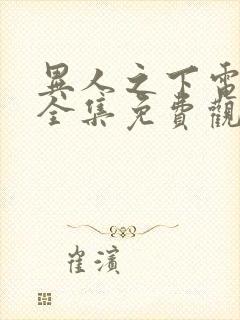 異人之下電
全集免費觀
崔濱